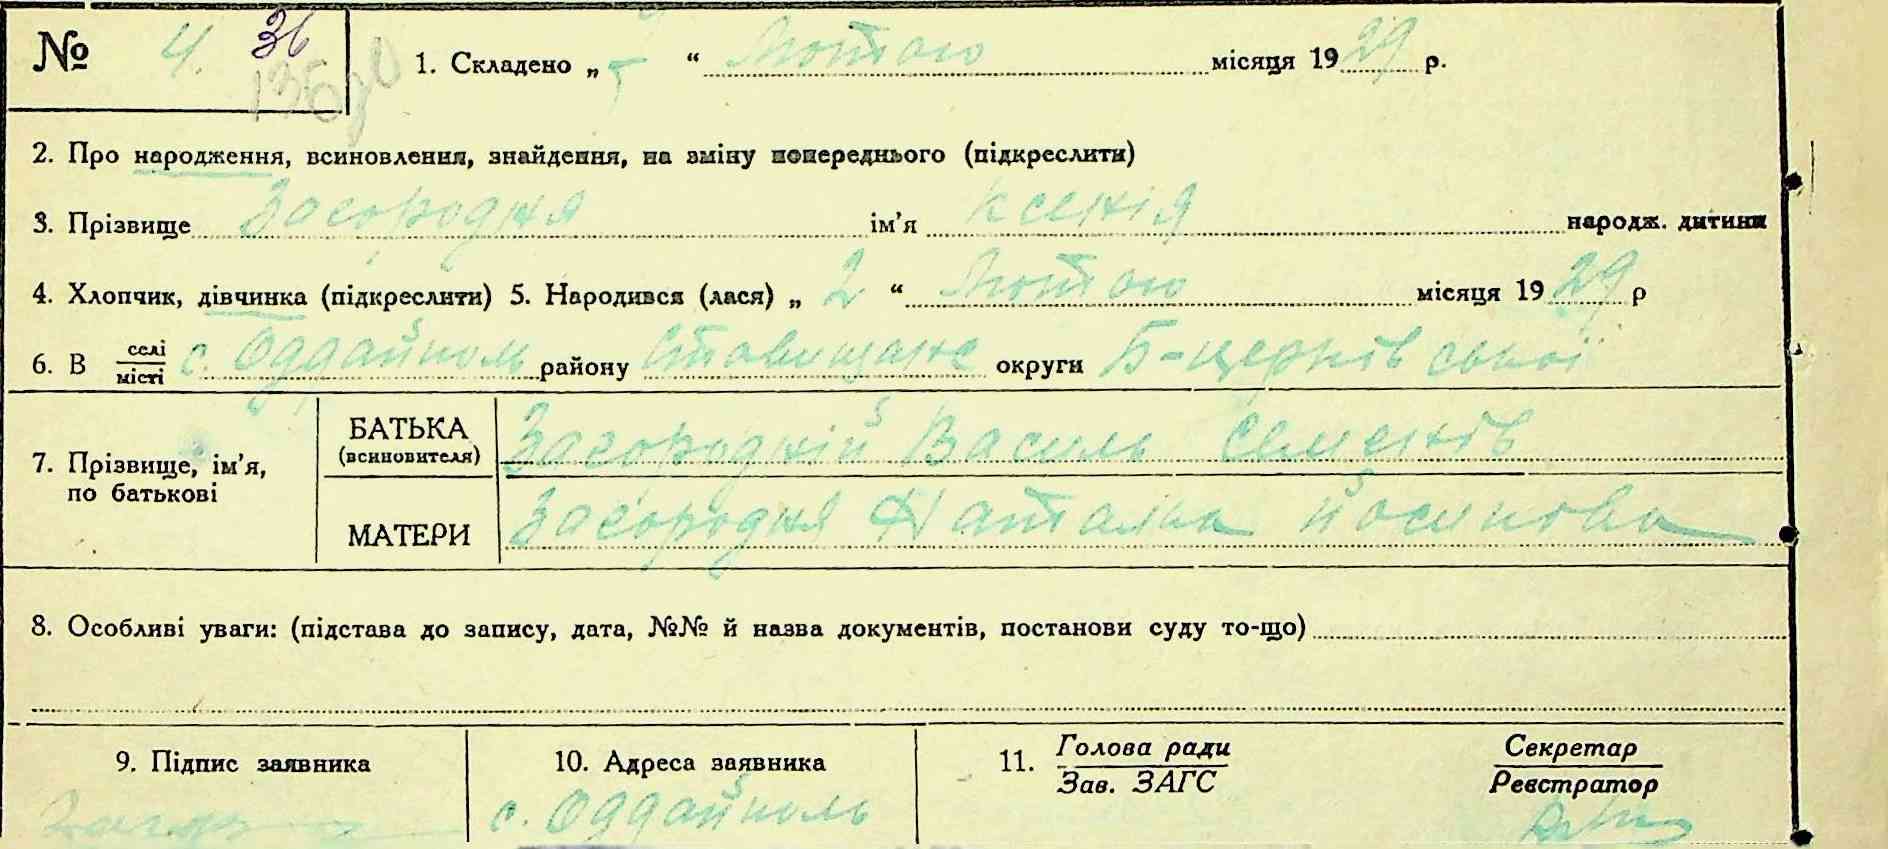 № 4. 36
1. Складено „ 5 “ Лютого місяця 1929 р.
2. Про народження, всиновлення, знайдення, на зміну попереднього (підкреслити)
3. Прізвище Загородня ім’я Ксенія народж. дитини
4. Хлопчик, дівчинка (підкреслити) 5. Народився (лася) „ 2 “ Лютого місяця 1929 р
6. В селі/місті с. Оддайполь району Ставищанс округи Б-церківської
7. Прізвище, ім’я, по батькові
БАТЬКА (всиновителя) Загородній Василь Семенів
МАТЕРИ Загородня Наталка Йосипова
8. Особливі уваги: (підстава до запису, дата, №№ й назва документів, постанови суду то-що)
9. Підпис заявника
10. Адреса заявника
с. Оддайполь
11. Голова ради
Зав. ЗАГС
Секретар
Реєстратор